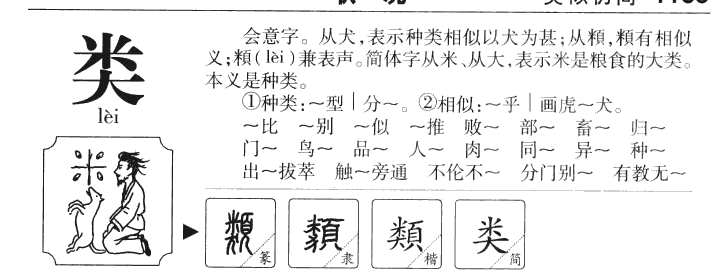 类
lèi
会意字。从犬,表示种类相似以犬为甚;从頪,頪有相似
义;頪(lèi)兼表声。简体字从米、从大,表示米是粮食的大类。
本义是种类。
①种类:~型|分~。②相似:~乎|画虎~犬。
~比 ~别 ~似 ~推 败~ 部~ 畜~ 归~
门~ 鸟~ 品~ 人~ 肉~ 同~ 异~ 种~
出~拔萃 触~旁通 不伦不~ 分门别~ 有教无~
類 篆 類 隶 類 楷 类 简